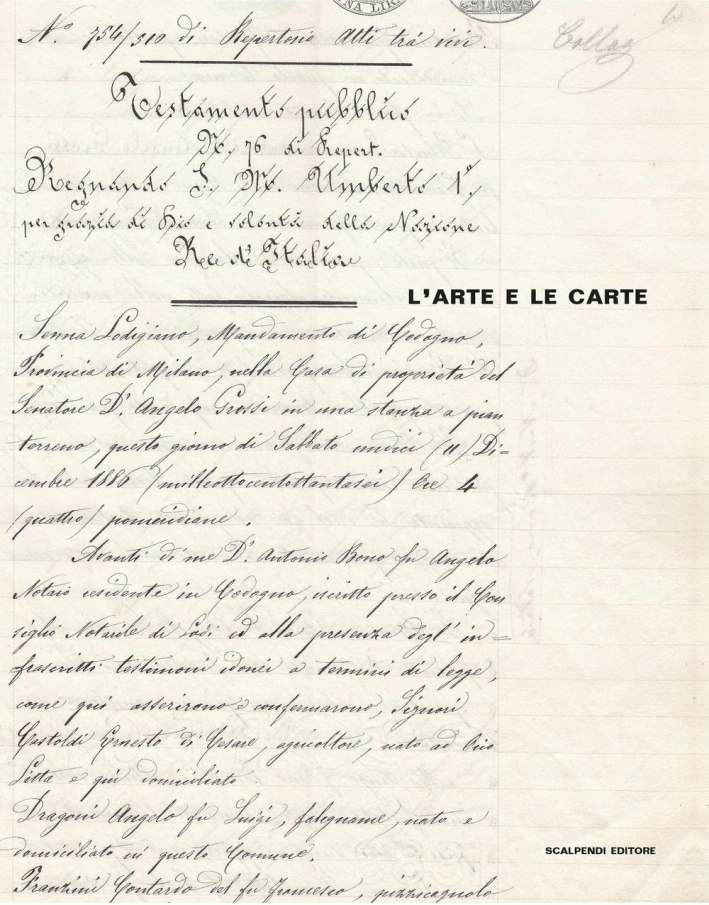 NA LIR
N.° 754/510 di Repertorio Atti trà vivi.
Collaz
Testamento pubblico
N. 76 di Repert.
Regnando S. M. Umberto 1°,
per grazia di Dio e volontà della Nazione
Re d'Italia
L'ARTE E LE CARTE
Senna Lodigiano, Mandamento di Codogno,
Provincia di Milano, nella Casa di proprietà del
Senatore D.r Angelo Grossi in una stanza a pian
terreno, questo giorno di Sabbato undici (11) Di=
cembre 1886 (milleottocentottantasei) Ore 4
(quattro) pomeridiane.
Avanti di me D.r Antonio Bono fu Angelo
Notaio residente in Codogno, iscritto presso il Con
siglio Notarile di Lodi ed alla presenza degl' in=
frascritti testimoni idonei a termini di legge,
come qui asserirono e confermarono, Signori
Castoldi Ernesto di Cesare, agricoltore, nato ad Orio
Litta e qui domiciliato
Dragoni Angelo fu Luigi, falegname, nato e
domiciliato in questo Comune.
Franzini Contardo del fu Francesco, pizzicagnolo
SCALPENDI EDITORE